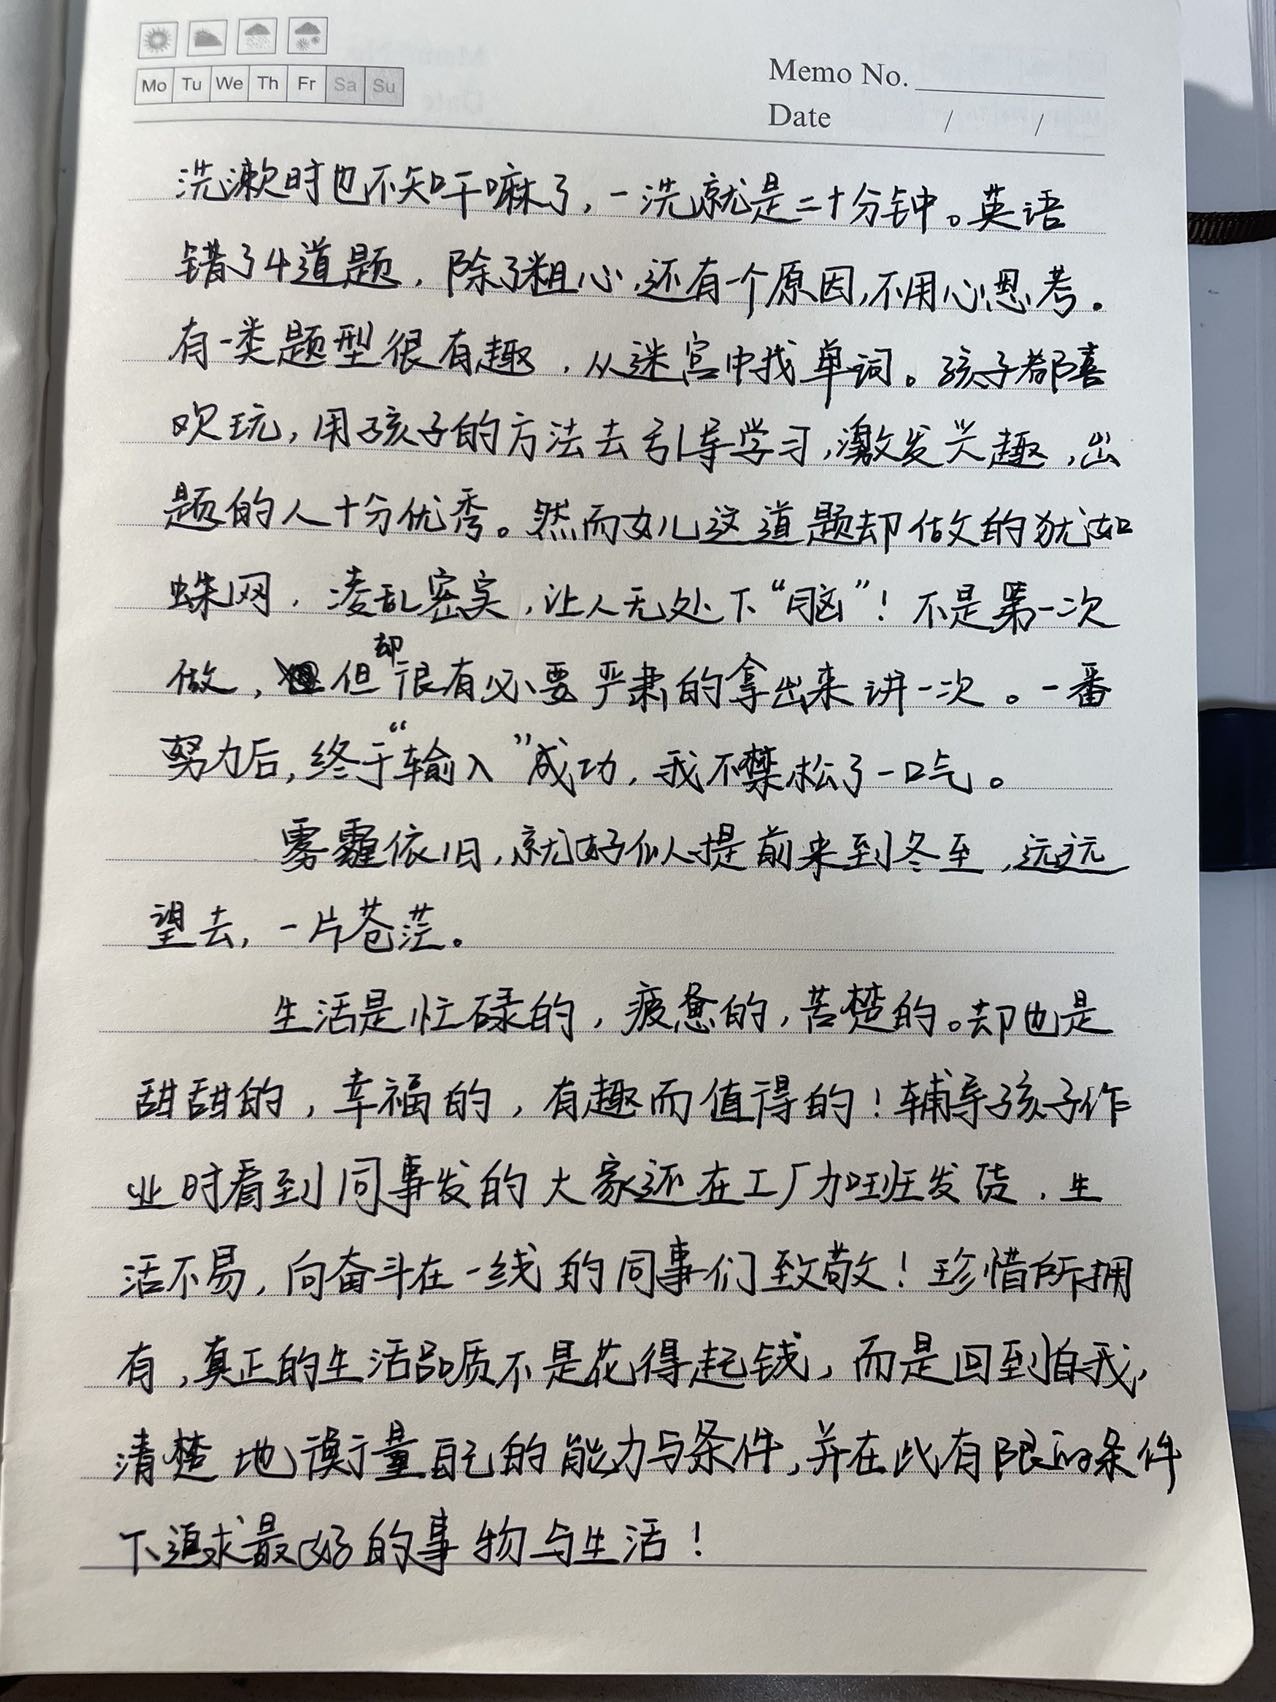 Mo Tu We Th Fr Sa Su
Memo No.
Date / /
洗漱时也不知干嘛了，一洗就是二十分钟。英语
错了4道题，除了粗心，还有一个原因，不用心思考。
有一类题型很有趣，从迷宫中找单词。孩子都喜
欢玩，用孩子的方法去引导学习，激发兴趣，出
题的人十分优秀。然而女儿这道题却做的犹如
蛛网，凌乱密实，让人无处下“脑”！不是第一次
做，但却很有必要严肃的拿出来讲一次。一番
努力后，终于“输入”成功，我不禁松了一口气。
雾霾依旧，就好似提前来到冬至，远远
望去，一片苍茫。
生活是忙碌的，疲惫的，苦楚的。却也是
甜甜的，幸福的，有趣而值得的！辅导孩子作
业时看到同事发的大家还在工厂加班发货，生
活不易，向奋斗在一线的同事们致敬！珍惜所拥
有，真正的生活品质不是花得起钱，而是回到自我，
清楚地衡量自己的能力与条件，并在此有限的条件
下追求最好的事物与生活！